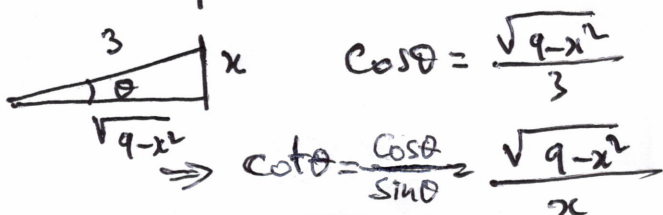 3
x
θ
√9-x²
Cosθ = √9-x² / 3
⇒ Cotθ = Cosθ / Sinθ = √9-x² / x